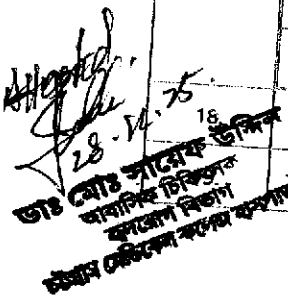 Attested.
18
ডাঃ মোঃ সায়েফ উদ্দিন
আবাসিক চিকিৎসক
বিভাগ
চট্টগ্রাম মেডিকেল কলেজ হাসপাতাল